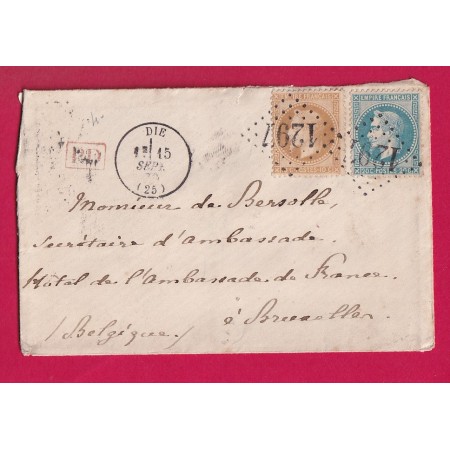 EMPIRE FRANÇAIS
EMPIRE FRANÇAIS
1297
DIE
15
SEPT.
(25)
P.D.
Monsieur de Bersolle,
Secrétaire d'Ambassade
Hôtel de l'Ambassade de France
à Bruxelles
/Belgique/